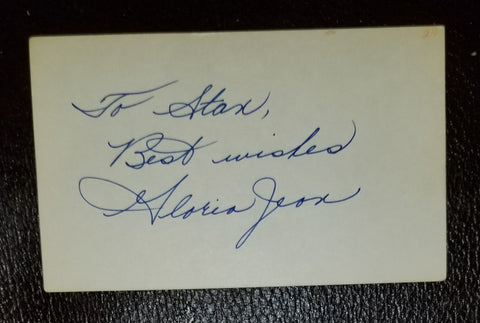 To Stan,
Best wishes
Gloria Jean